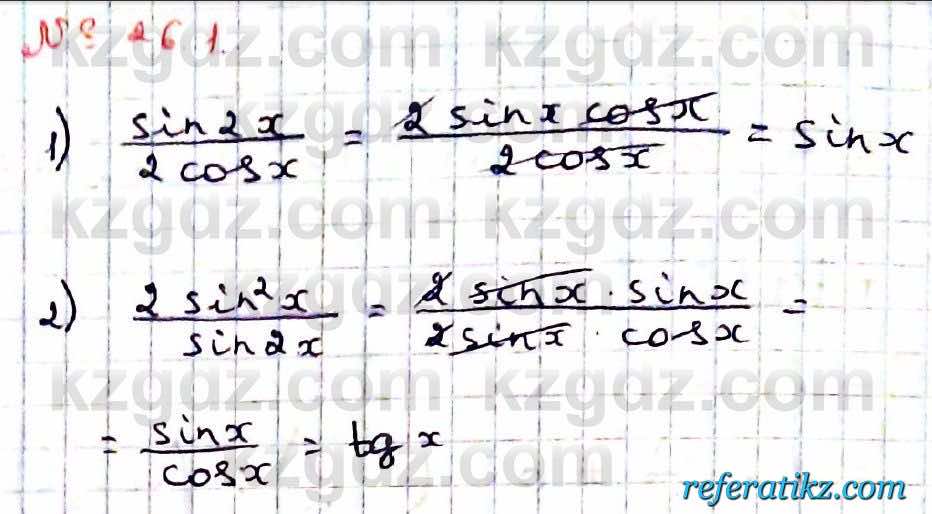 № 26.1.
1) sin2x / 2cosx = 2 sinx cosx / 2cosx = sinx
2) 2 sin²x / sin2x = 2 sinx · sinx / 2sinx · cosx =
= sinx / cosx = tg x
kzgdz.com kzgdz.com
kzgdz.com kzgdz.com
kzgdz.com kzgdz.com
kzgdz.com kzgdz.com
kzgdz.com kzgdz.com
kzgdz.com
referatikz.com